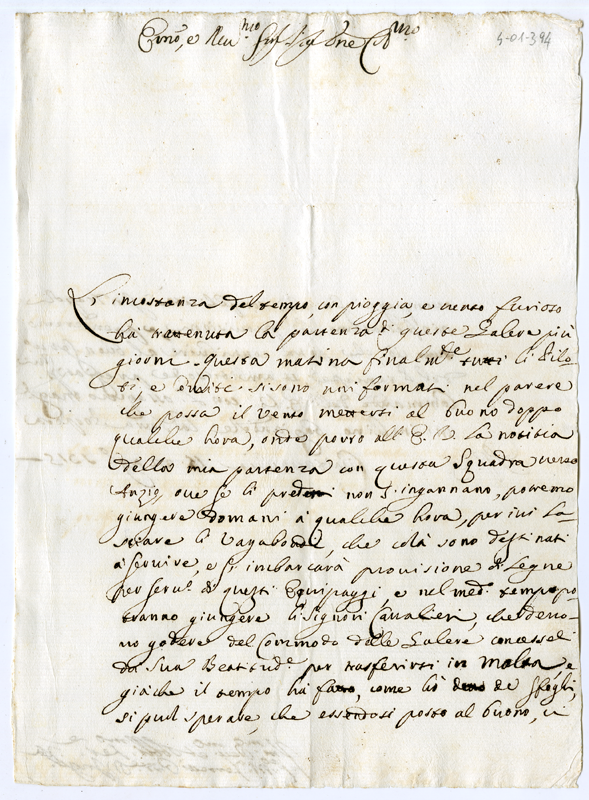 Em̃o, e Reu.mo Sig.r Sig.r Pne Col.mo
5-01-394
L'incostanza del tempo, con pioggia, e uento furioso
ha trattenuta la partenza di queste Galere più
giorni. Questa matina finalm.te tutti li Pilo-
ti, e si sono uniformati nel parere
che possa il uento mettersi al buono doppo
qualche hora, onde porto all' E. V. la notitia
della mia partenza con questa Squadra uerso
Anzio, oue se li non s'ingannano, potremo
giungere domani à qualche hora, per iui La-
sciare li Vagabondi, che colà sono destinati
à seruire, e si imbarcarà prouisione di Legne
per seru.o di questi Equipaggi, e nel med.o tempo po-
tranno giungere li Signori Caualieri, che deuo-
no godere del Commodo delle Galere concesseli
da Sua Beatitud.e per trasferirsi in Malta, e
giache il tempo hà fatto, come hò de Sfoghi,
si può sperare, che essendosi posto al buono, ci